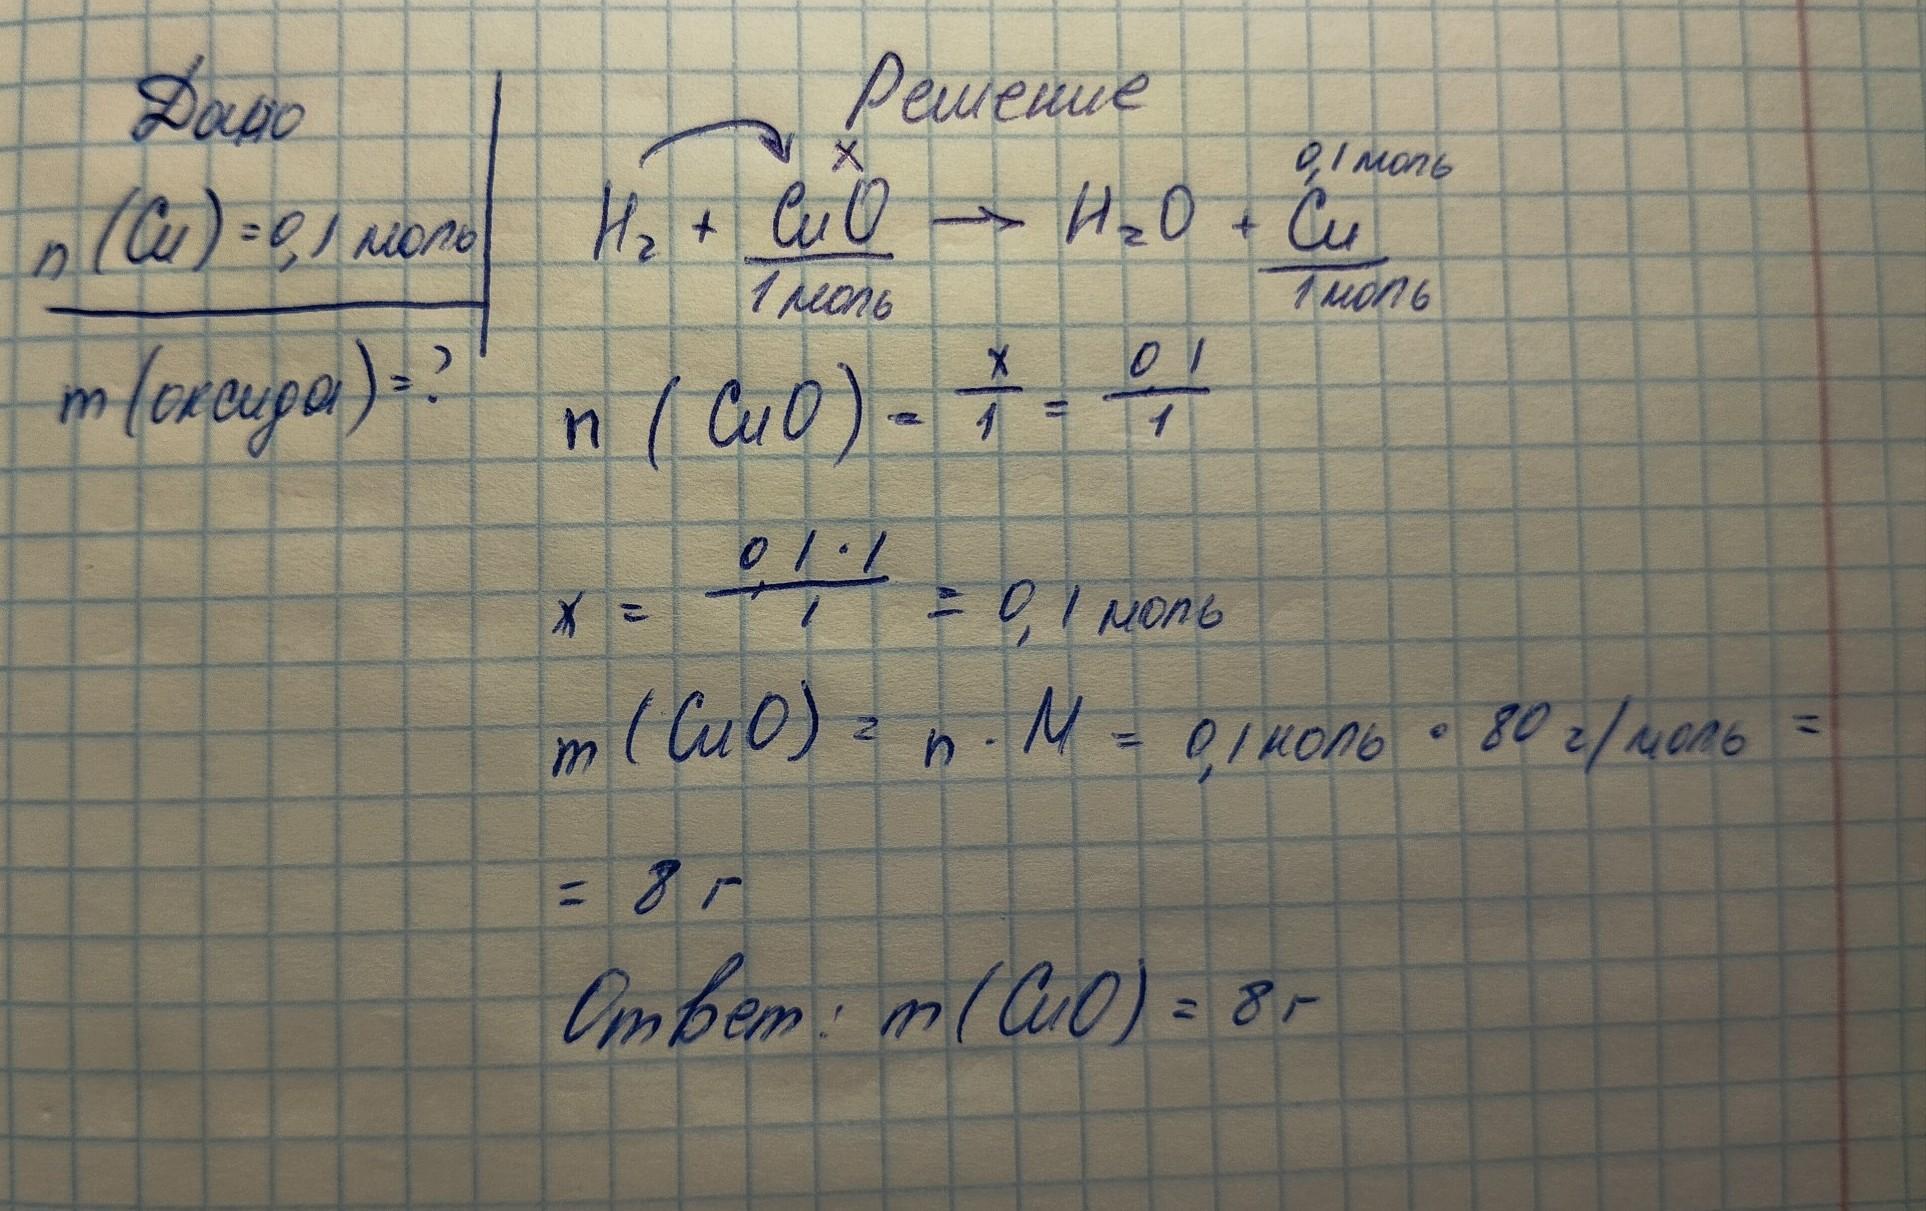 Дано
n (Cu) = 0,1 моль
m (оксида) = ?
Решение
x 0,1 моль
H₂ + CuO → H₂O + Cu
1 моль 1 моль
n (CuO) = x/1 = 0,1/1
x = 0,1·1/1 = 0,1 моль
m (CuO) = n · M = 0,1 моль · 80 г/моль =
= 8 г
Ответ: m (CuO) = 8 г